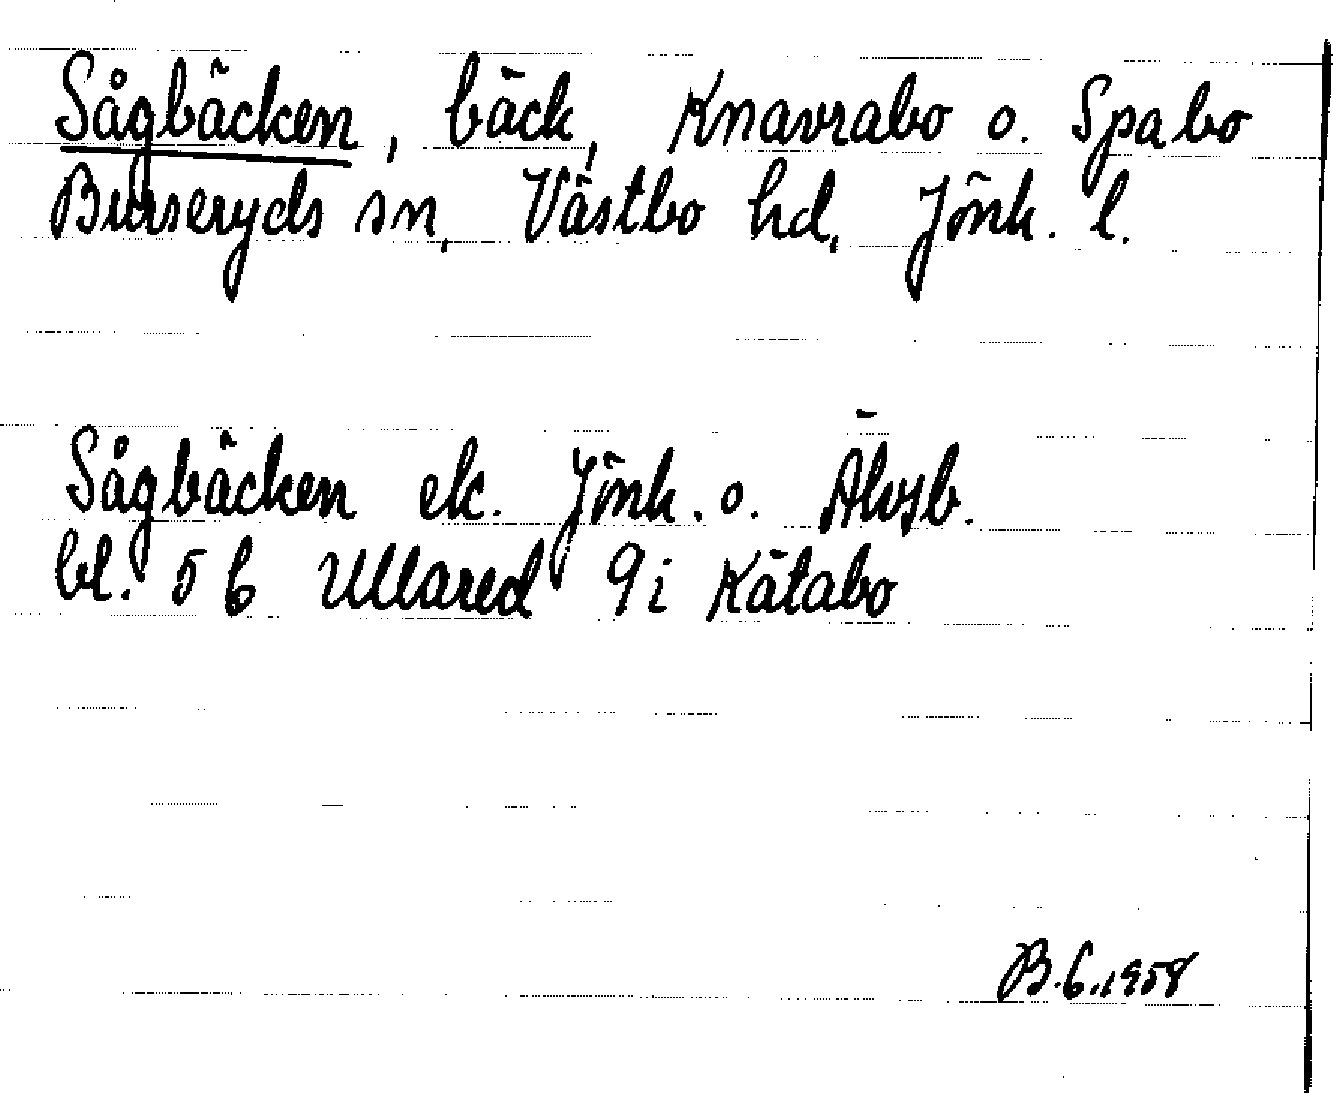 Sågbäcken, bäck, Knavrabo o. Spabo
Burseryds sn, Västbo hd, Jönk. l.
Sågbäcken ek. Jönk. o. Älvsb.
bl. 5 b Ullared 9 i Kätabo
B.6.1958